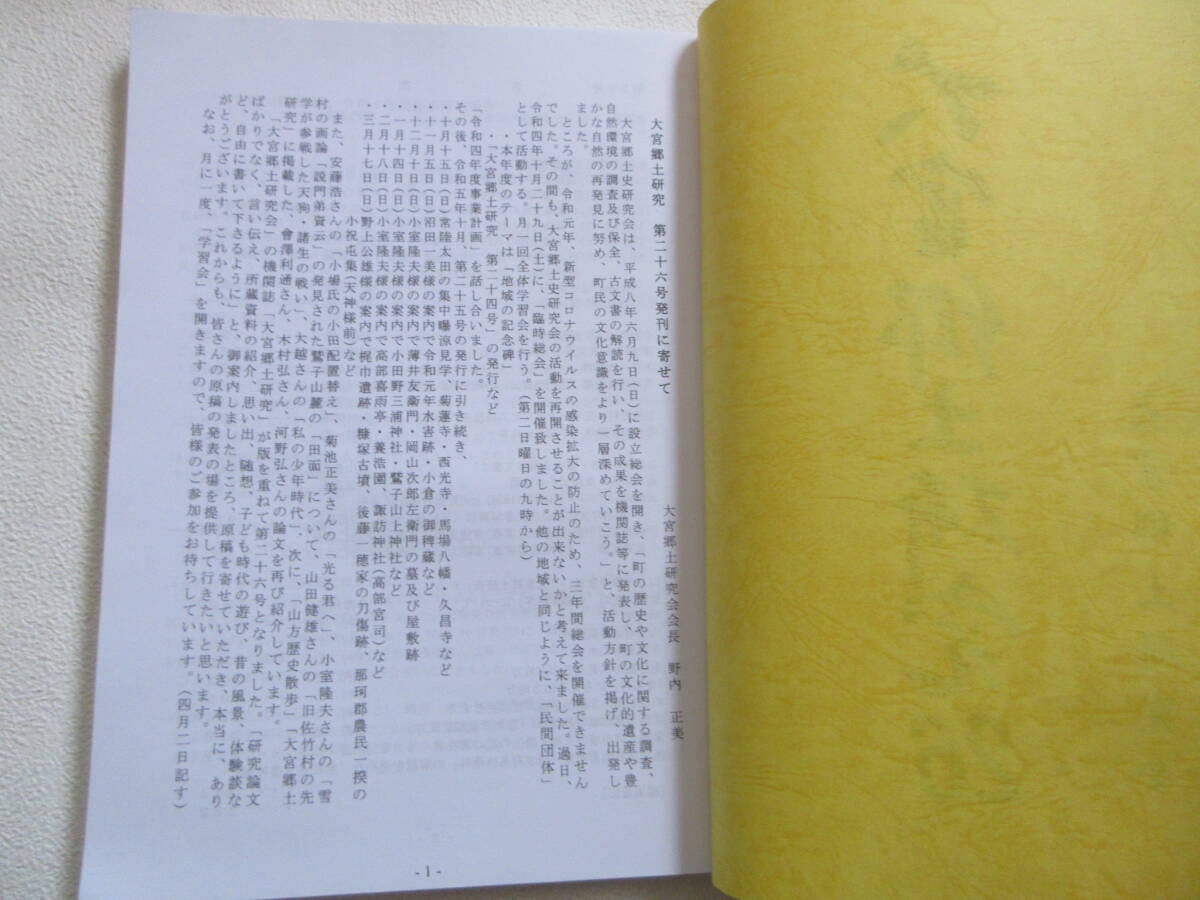 大宮郷土研究　第二十六号発刊に寄せて
大宮郷土研究会会長　野内　正美
大宮郷土史研究会は、平成八年六月九日(日)に設立総会を開き、「町の歴史や文化に関する調査、
自然環境の調査及び保全、古文書の解読を行い、その成果を機関誌等に発表し、町の文化的遺産や豊
かな自然の再発見に努め、町民の文化意識をより一層深めていこう。」と、活動方針を掲げ、出発し
ました。
ところが、令和元年、新型コロナウイルスの感染拡大の防止のため、三年間総会を開催できません
でした。その間も、大宮郷土史研究会の活動を再開させることが出来ないかと考えて来ました。過日、
令和四年十月二十九日(土)に、「臨時総会」を開催致しました。他の地域と同じように、「民間団体」
として活動する。月一回全体学習会を行う。(第二日曜日の九時から)
・本年度のテーマは「地域の記念碑」
・「大宮郷土研究　第二十四号」の発行など
「令和四年度事業計画」を話し合いました。
その後、令和五年十月、第二十五号の発行に引き続き、
・十月十五日(日)常陸太田の集中曝涼見学、菊蓮寺・西光寺・馬場八幡・久昌寺など
・十一月五日(日)沼田一美様の案内で令和元年水害跡・小倉の御稗蔵など
・十二月十日(日)小室隆夫様の案内で薄井友衛門・岡山次郎左衛門の墓及び屋敷跡
・一月十四日(日)小室隆夫様の案内で小田野三浦神社・鷲子山上神社など
・二月十八日(日)小室隆夫様の案内で高部喜雨亭・養浩園、諏訪神社(高部宮司)など
・三月十七日(日)野上公雄様の案内で梶巾遺跡・糠塚古墳、後藤一穂家の刀傷跡、那珂郡農民一揆の
小祝屯集(天神様前)など
また、安藤浩さんの「小場氏の小田配置替え」、菊池正美さんの「光る君へ」、小室隆夫さんの「雪
村の画論「説門弟資云」の発見された鷲子山麓の「田面」について、山田健雄さんの「旧佐竹村の先
学が参戦した天狗・諸生の戦い」、大越さんの「私の少年時代」、次に、「山方歴史散歩」「大宮郷土
研究」に掲載した、會澤利通さん、木村弘さん、河野弘さんの論文を再び紹介しています。
「大宮郷土研究会」の機関誌「大宮郷土研究」が版を重ねて第二十六号となりました。「研究論文
ばかりでなく、言い伝え、所蔵資料の紹介、思い出、随想、子ども時代の遊び、昔の風景、体験談な
ど、自由に書いて下さるように」と、御案内しましたところ、原稿を寄せていただき、本当に、あり
がとうございます。これからも、皆さんの原稿の発表の場を提供して行きたいと思います。
なお、月に一度、「学習会」を開きますので、皆様のご参加をお待ちしています。(四月二日記す)
- 1 -